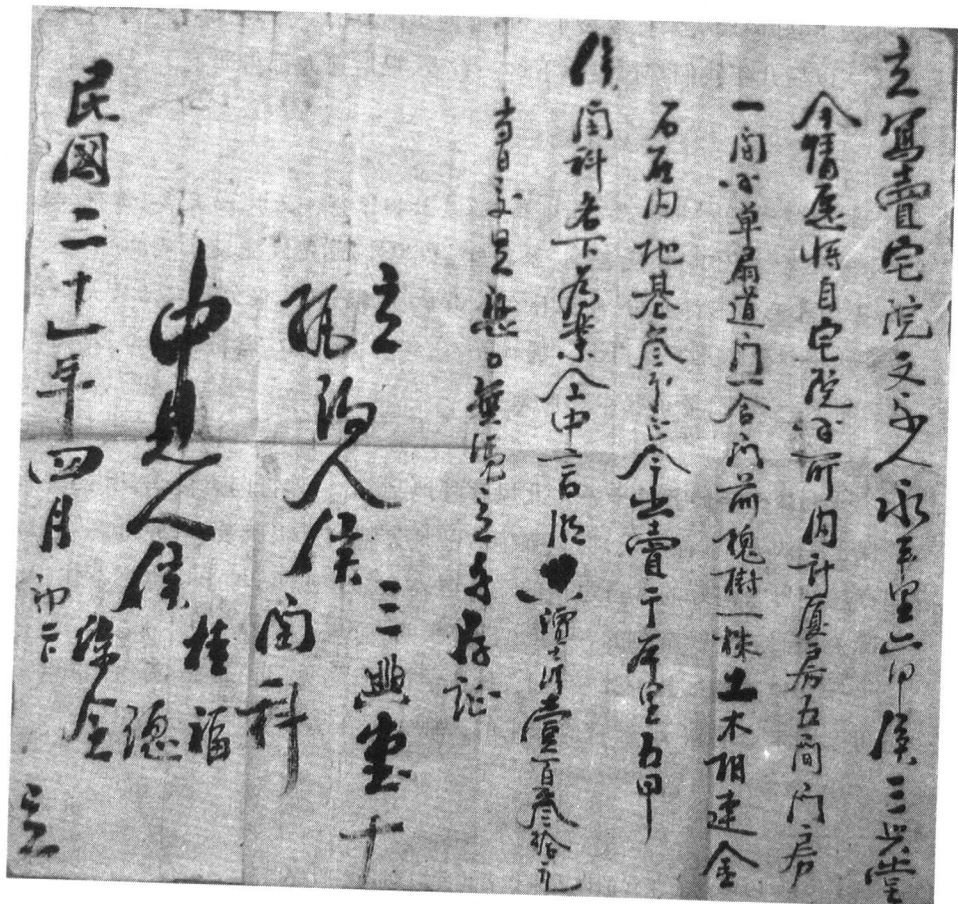 立寫賣宅院文字人永平里六甲侯三兴堂
今情愿將自宅院一所内計厦房五間门房
一间外单扇道门一合门前槐樹一株土木相連金
石在内地基分今出賣于本里五甲
侯闰科名下為業仝中言明價洋壹百叁拾元
當日交足恐口無憑立字存証
立 三興堂十
約人侯闰科
中見人侯 桂福 德 金
民國二十一年四月初六 立